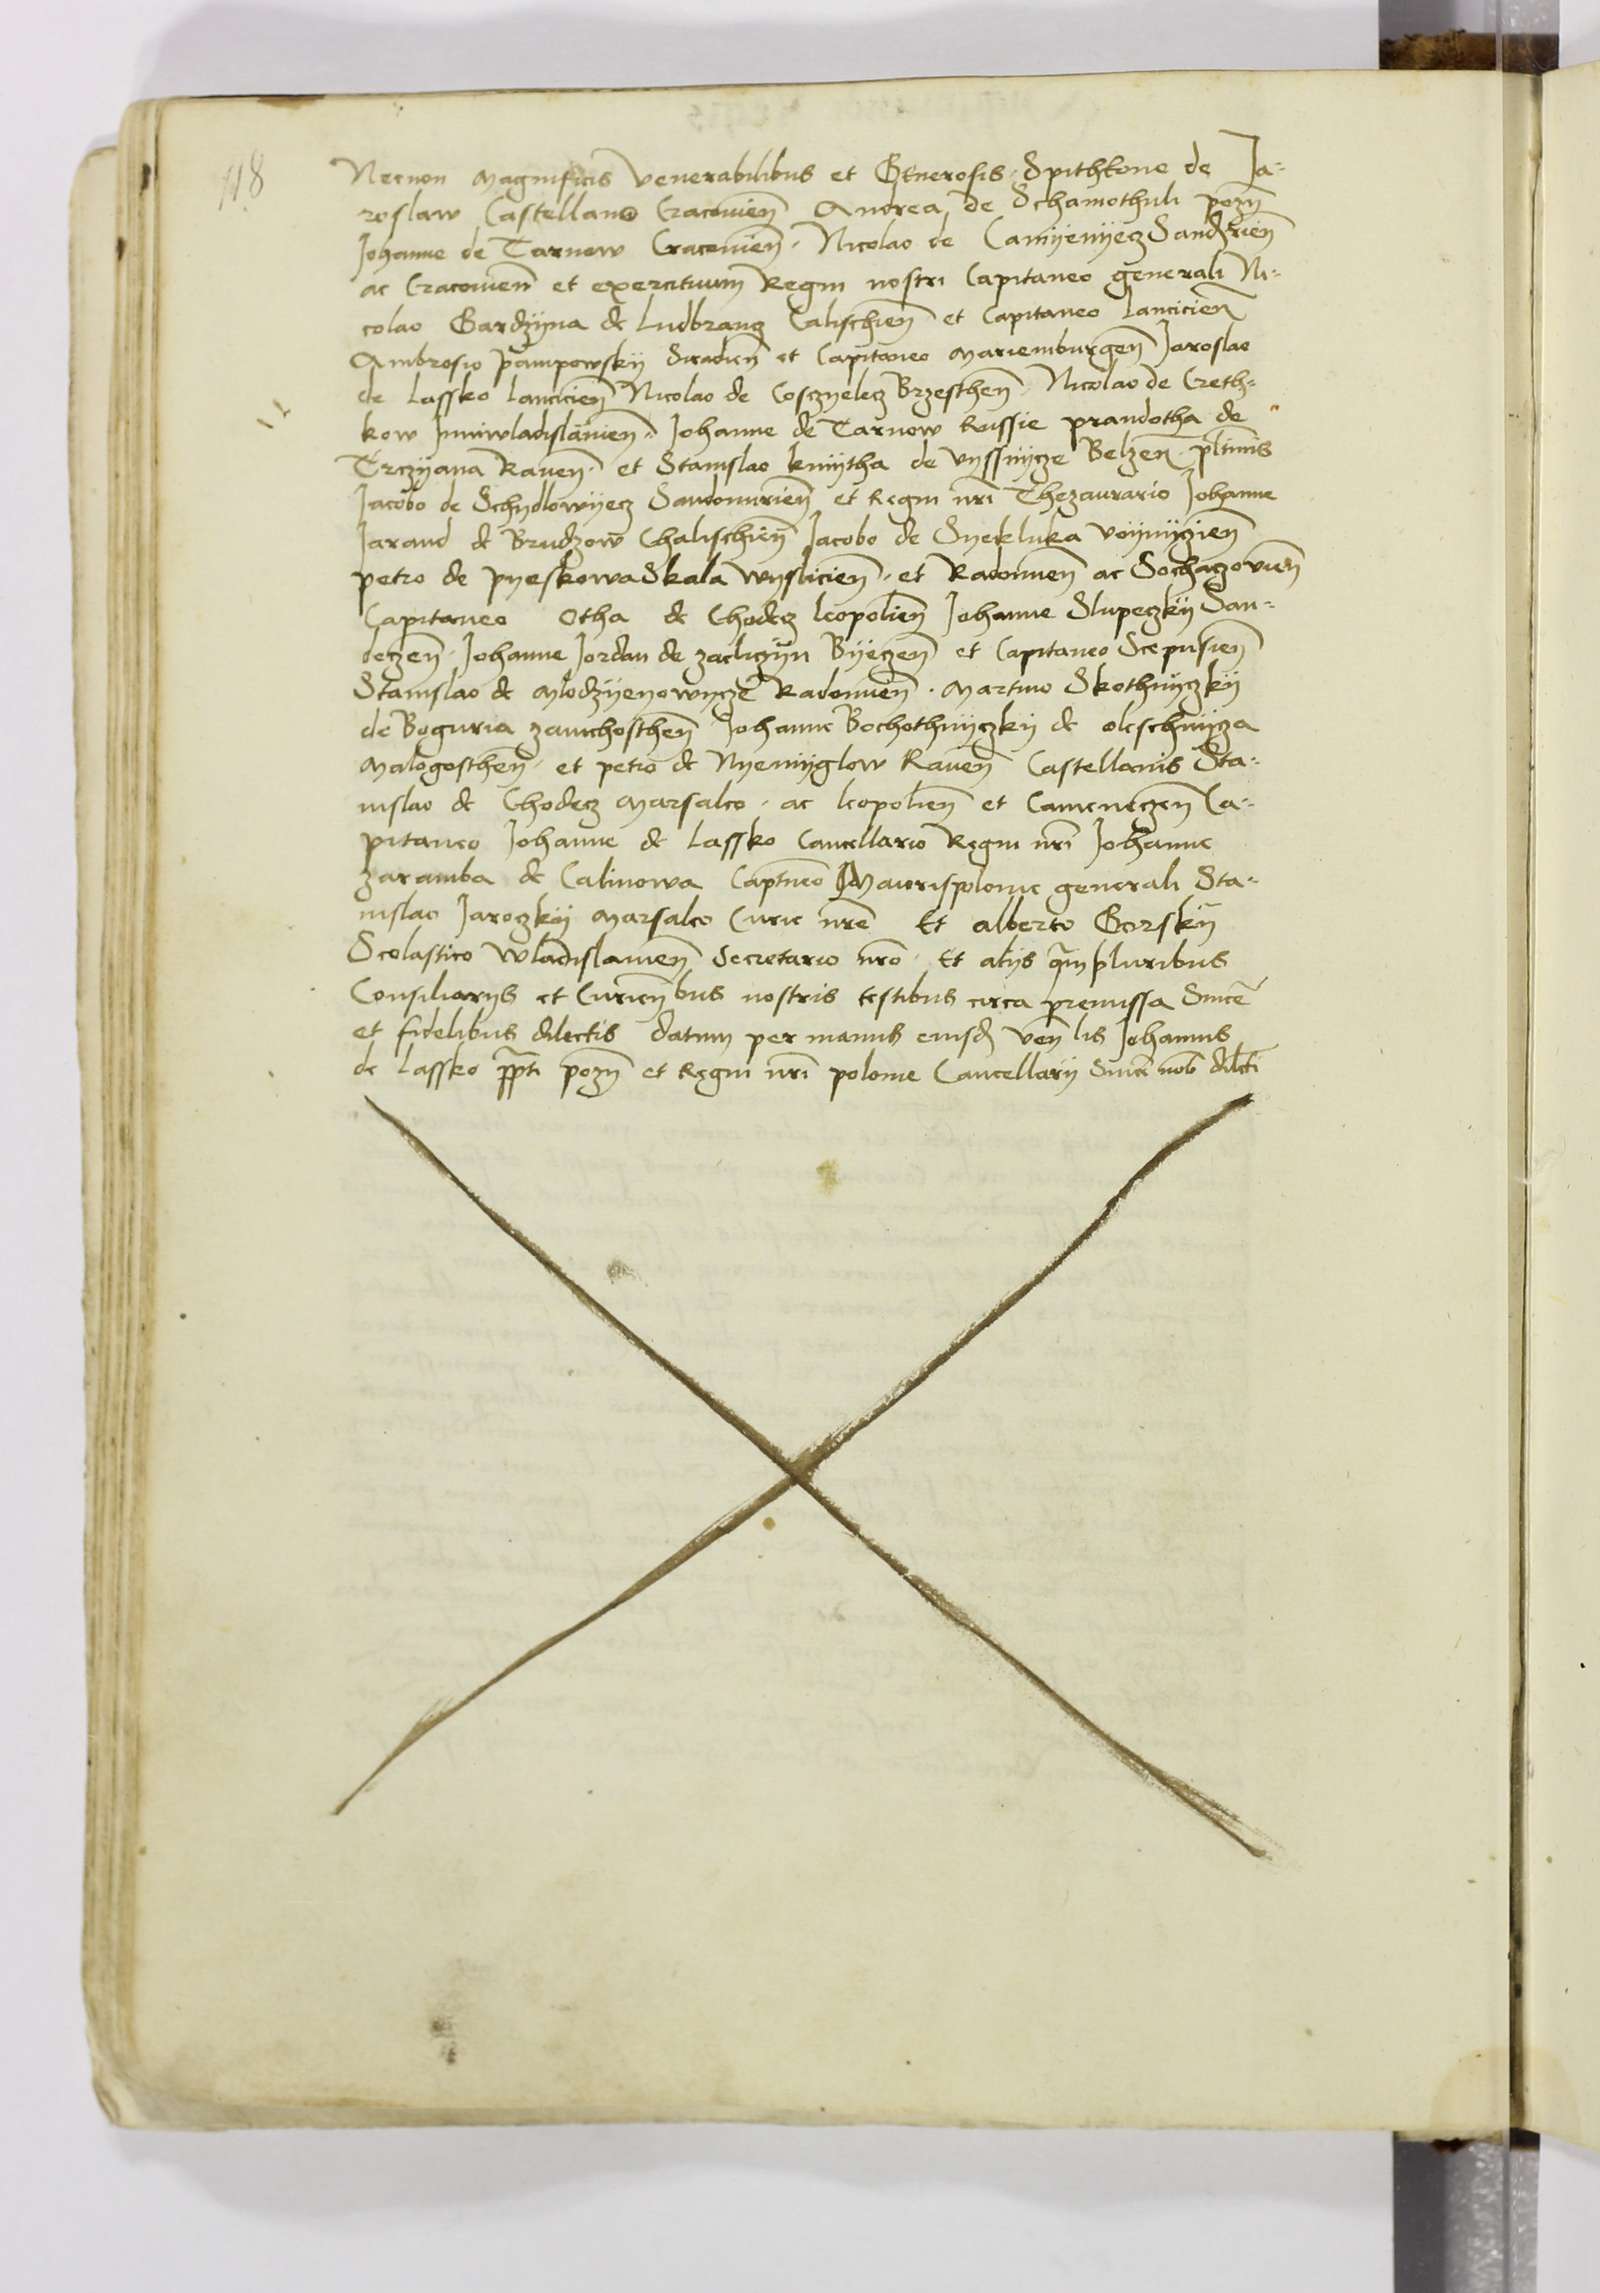 118
Necnon Magnificis Venerabilibus et Generosis Spithkone de Ja-
roslaw Castellano Cracovien̄ Andrea de Schamothuli pozn̄
Johanne de Tarnow Cracovien̄ Nicolao de Camyenyecz Sandomirien̄
ac Cracovien̄ et exercituum Regni nostri Capitaneo generali Ni-
colao Gardzyna de Ludbrancz Calischien̄ et Capitaneo Lancicien̄
Ambrosio pampowsky Siradien̄ et Capitaneo Mariemburgen̄ Jaroslao
de Lassko Lancicien̄ Nicolao de Cosczyelecz Brzesthen̄ Nicolao de Creth-
kow Juniwladislavien̄ Johanne de Tarnow Russie prandotha de
Trczyana Raven̄ et Stanislao kmytha de Vyssnycze Belzen̄ pltinis
Jacobo de Schydlowyecz Sandomirien̄ et Regni nr̄i Thezaurario Johanne
Jarand de Brudzow Chalischien̄ Jacobo de Syekluka Voynyczien̄
petro de pyeskowa Skala Wyslicien̄ et Radomien̄ ac Sochaczovien̄
Capitaneo Otha de Chodecz Leopolien̄ Johanne Slupeczky San-
deczen̄ Johanne Jordan de zacliczyn Byeczen̄ et Capitaneo Scepusien̄
Stanislao de Mlodzyenowycze Radomien̄ Martino Skothnyczky
de Boguria zawichosthen̄ Johanne Bochothnyczky de oleschnycza
Malogosthen̄ et petro de Nyemyglow Raven̄ Castellanis Sta-
nislao de Chodecz Marsalco ac leopolien̄ et Cameneczen̄ Ca-
pitaneo Johanne de Lassko Cancellario Regni nr̄i Johanne
zaramba de Calinowa Captneo Maiorispolonie generali Sta-
nislao Jaroczky Marsalco Curie nr̄e Et alberto Gorsky
Scolastico Wladislavien̄ Secretario nr̄o Et alijs q̄mpluribus
Consiliarijs et Curien̄bus nostris testibus circa premissa Sincē
et fidelibus dilectis datum per manus eiusd̄ ven̄lis Johannis
de Lassko pp̄ti pozn̄ et Regni nr̄i polonie Cancellarij Sincē nob̄ dilcti